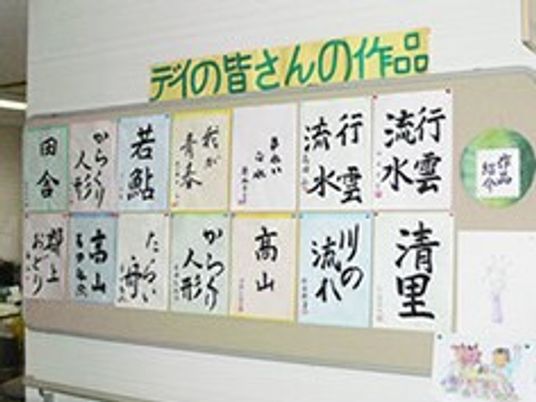 デイの皆さんの作品
行雲
流水
行雲
流水
きれい
な水
我が
青春
若鮎
からくり
人形
田舎
作品
紹介
清里
川の
流れ
高山
からくり
人形
たらい
舟
高山
郡上
おどり